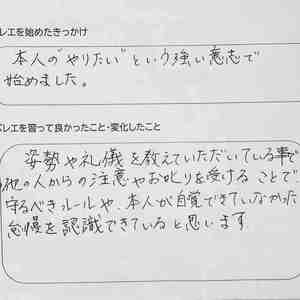 バレエを始めたきっかけ
本人の"やりたい"という強い意志で
始めました。
バレエを習って良かったこと・変化したこと
姿勢や礼儀を教えていただいている事で
他の人からの注意やお叱りを受けることで
守るべきルールや、本人が自覚できていなかった
怠慢を認識できていると思います